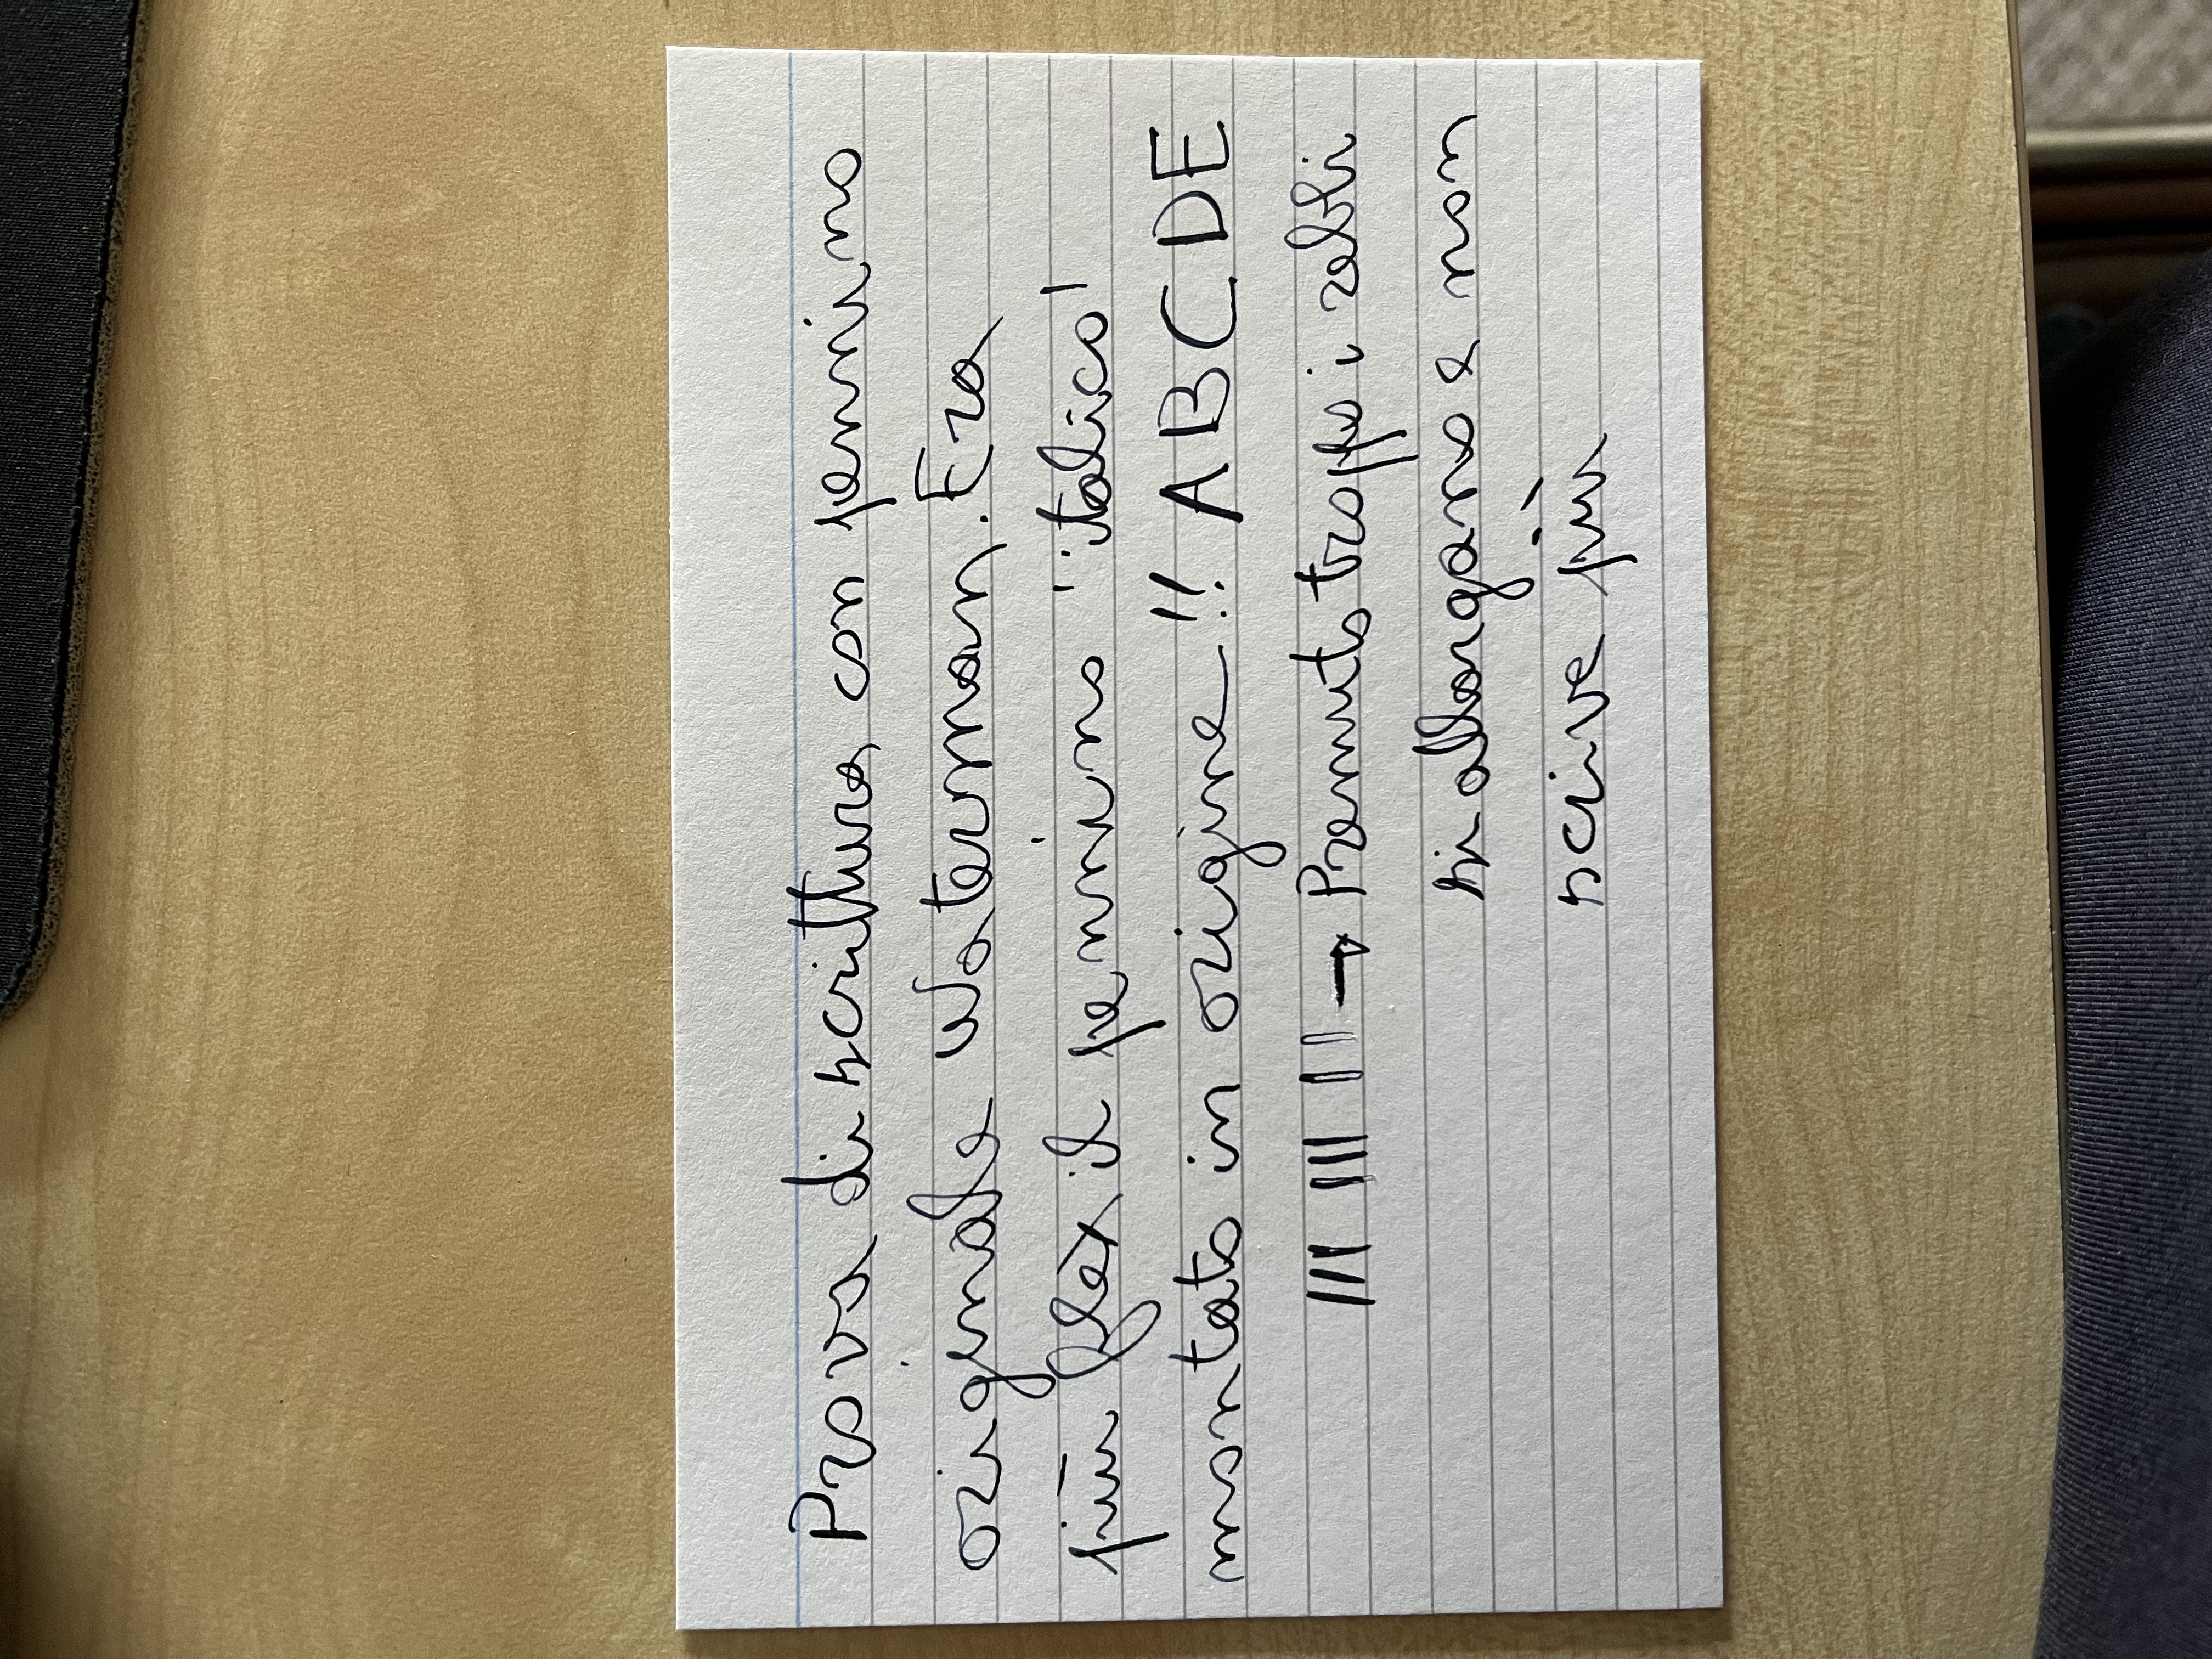 Prova di scrittura con pennino
originale Waterman. Era
più flex il pennino "italico"
montato in origine!! ABCDE
||| ||| || → Premuto troppo i rebbi
si allargano e non
scrive più